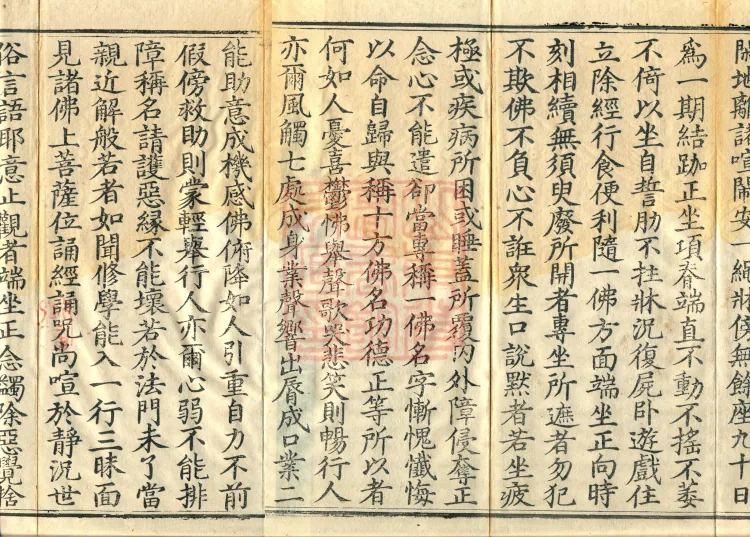 閑地離諸喧閙安一繩牀傍無餘座九十日
為一期結跏正坐項脊端直不動不搖不萎
不倚以坐自誓肋不拄牀況復屍卧遊戲住
立除經行食便利隨一佛方面端坐正向時
刻相續無須臾廢所開者專坐所遮者勿犯
不欺佛不負心不誑衆生口說黙者若坐疲
極或疾病所困或睡蓋所覆內外障侵奪正
念心不能遣卻當專稱一佛名字慚愧懺悔
以命自歸與稱十方佛名功德正等所以者
何如人憂喜鬱怫舉聲歌哭悲笑則暢行人
亦爾風觸七處成身業聲響出脣成口業二
能助意成機感佛俯降如人引重自力不前
假傍救助則蒙輕舉行人亦爾心弱不能排
障稱名請護惡緣不能壞若於法門未了當
親近解般若者如聞修學能入一行三昧面
見諸佛上菩薩位誦經誦呪尚喧於靜況世
俗言語耶意止觀者端坐正念蠲除惡覺捨